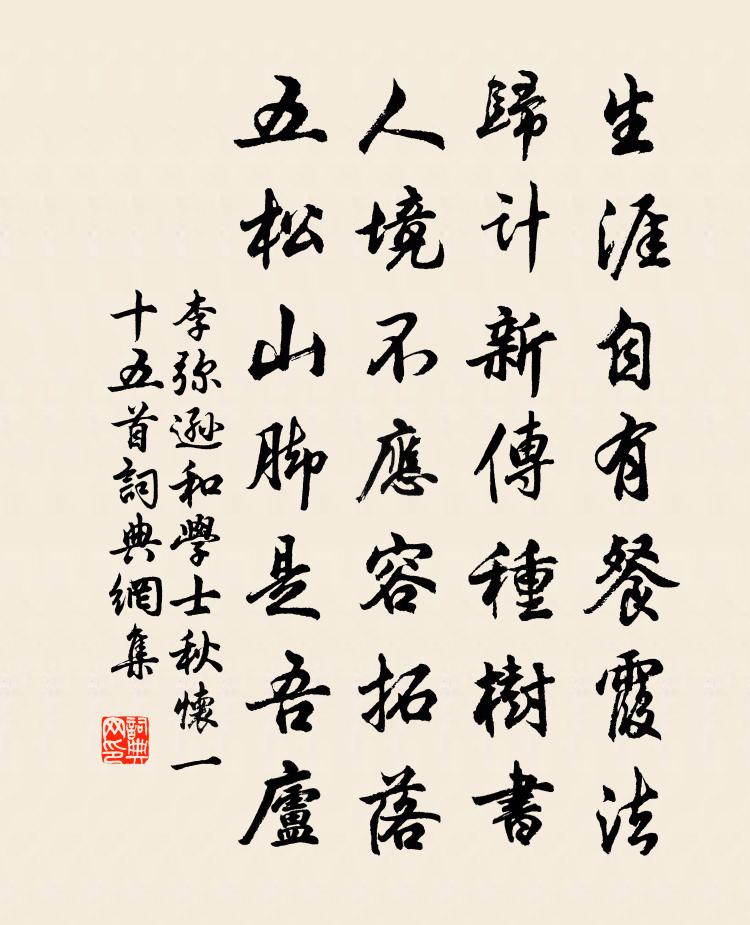 生涯自有餐霞法
歸计新傳種樹書
人境不應容拓落
五松山脚是吾廬
李弥遜和學士秋懷一
十五首詞典網集
詞典
网印